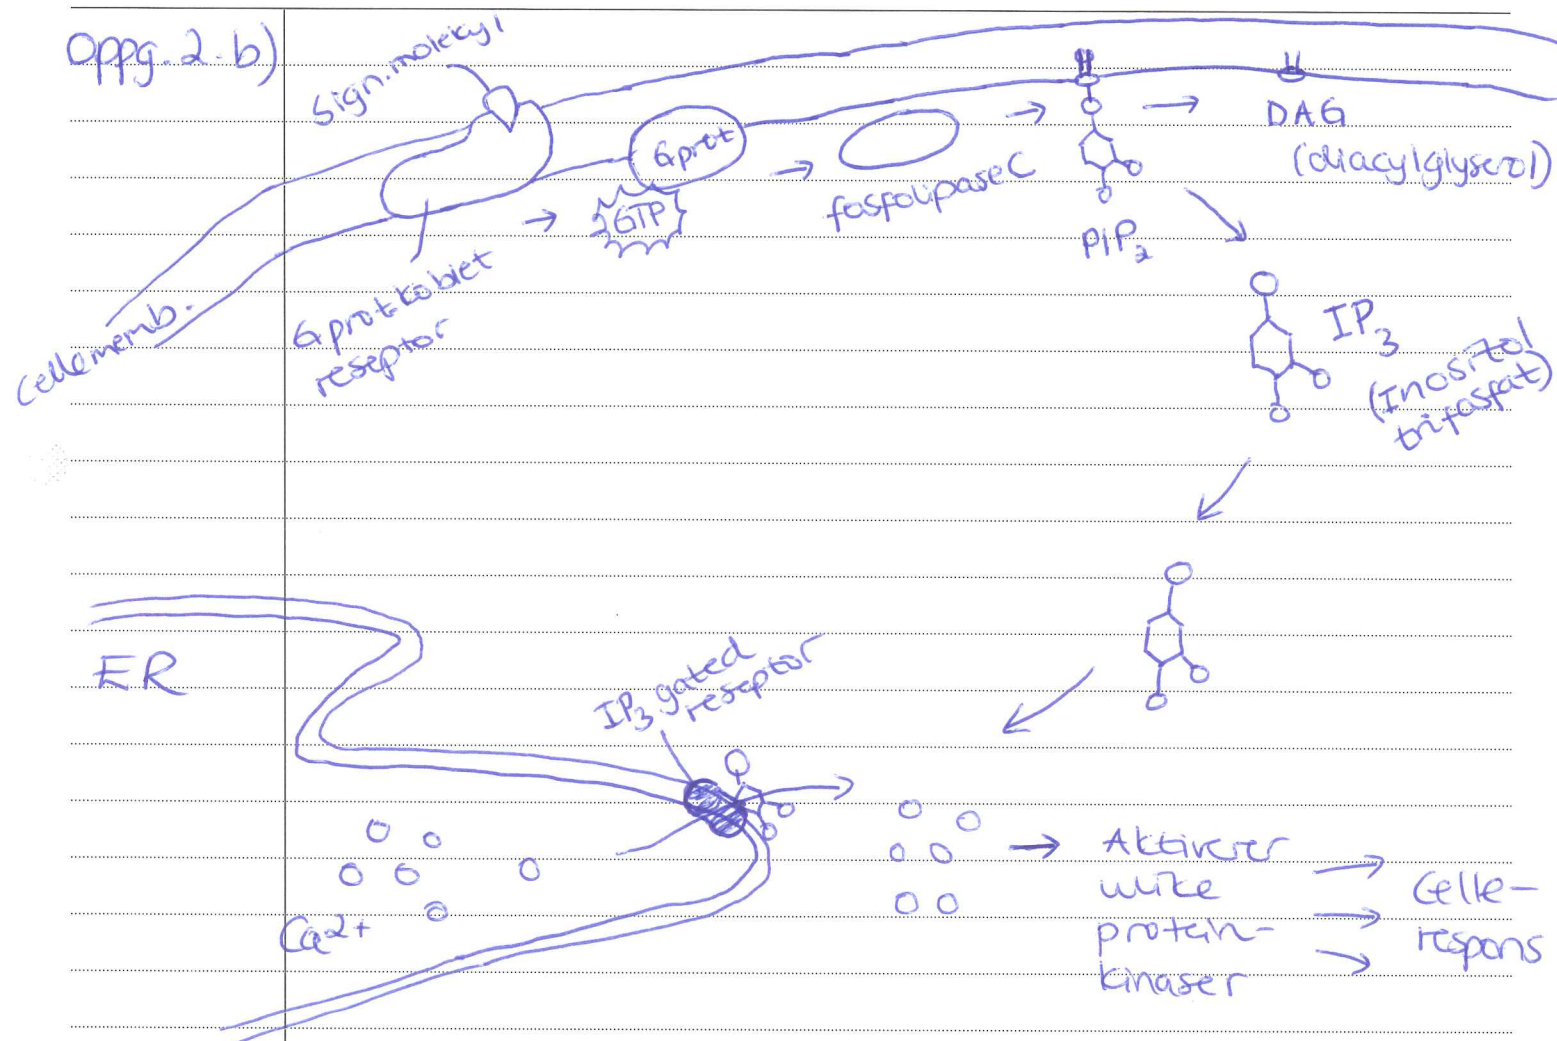 Oppg. 2. b)
Sign.molekyl
Cellememb.
Gprotkoblet
reseptor
Gprot
GTP
fosfolipase C
PIP₂
DAG
(diacylglyserol)
IP₃
(Inositol
trifosfat)
ER
IP₃ gated
reseptor
Ca²⁺
Aktiverer
ulike
protein-
kinaser
Celle-
respons